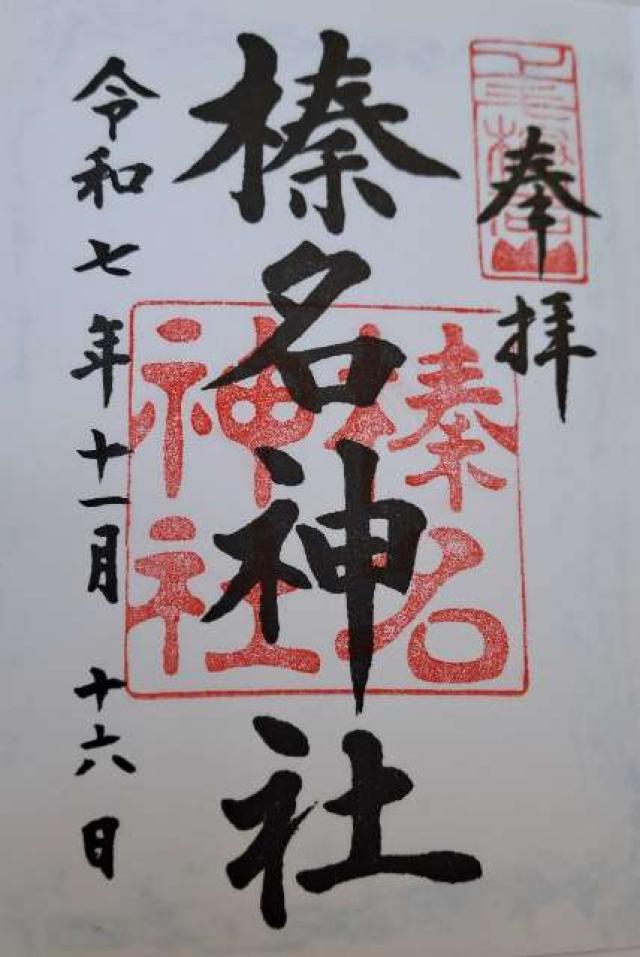 奉拝
榛名神社
令和七年十一月十六日
榛名
神社